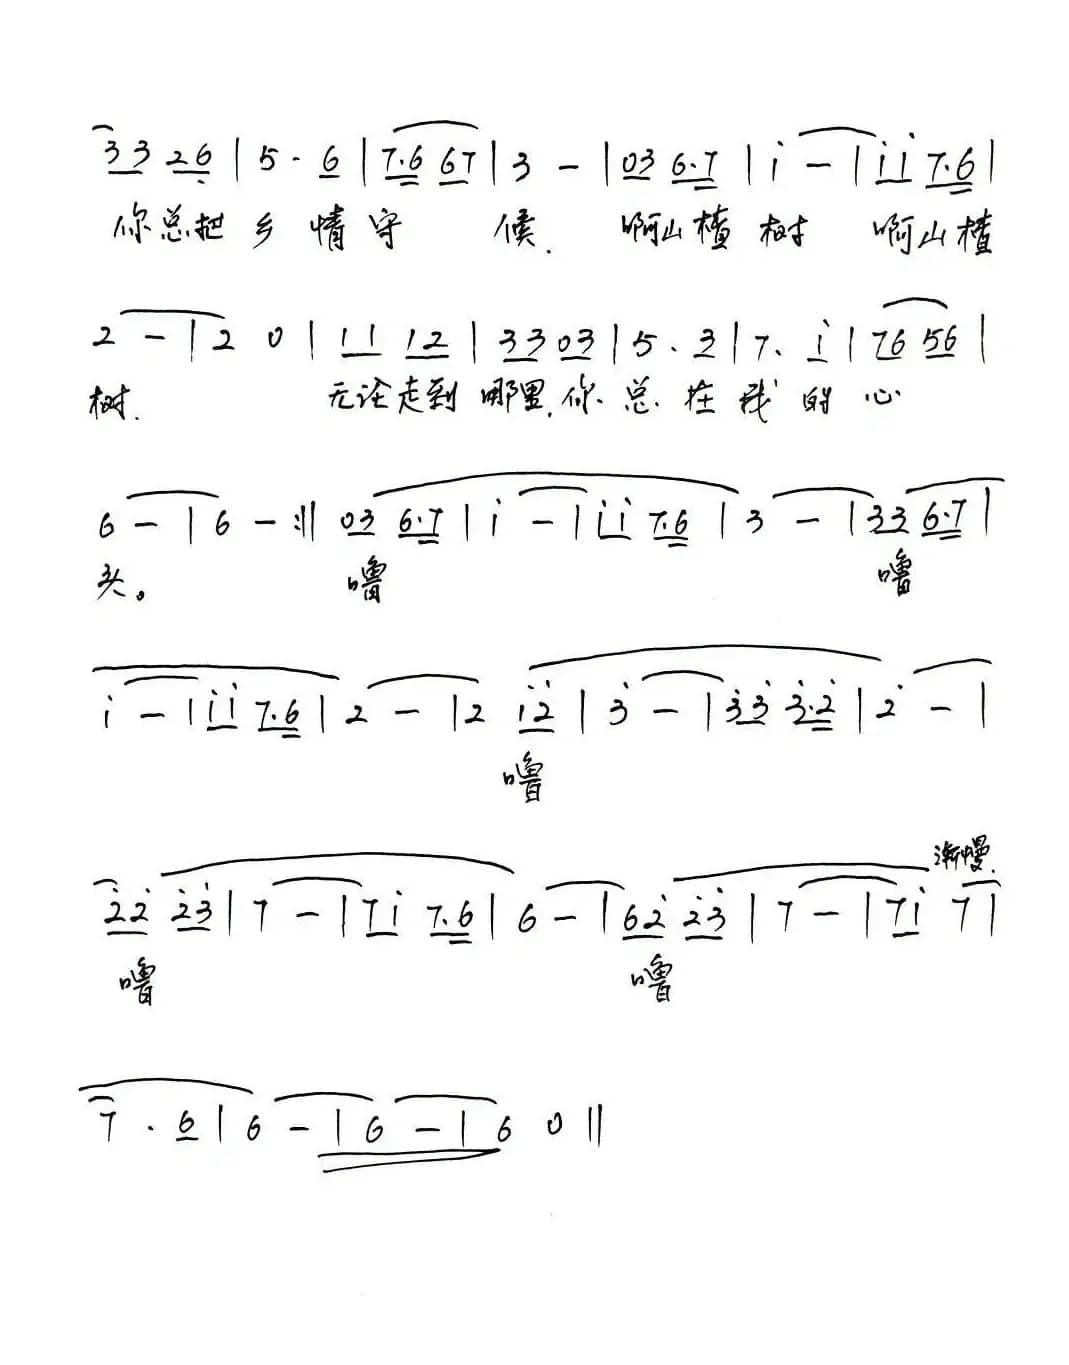 3 3 2 6 | 5 · 6 | 7·6 6 7 | 3 - | 0 3 6·7 | i - | i i 7·6 |
你总把乡情守 候. 啊山楂树 啊山楂
2 - | 2 0 | 1 1 1 2 | 3 3 0 3 | 5 · 3 | 7 · i | 7 6 5 6 |
树. 无论走到哪里,你总在我的心
6 - | 6 - :‖ 0 3 6·7 | i - | i i 7·6 | 3 - | 3 3 6·7 |
头。 噜 噜
i - | i i 7·6 | 2 - | 2 i 2̇ | 3̇ - | 3̇ 3̇ 3̇·2̇ | 2̇ - |
噜
渐慢
2̇ 2̇ 2̇ 3̇ | 7 - | 7 i 7·6 | 6 - | 6 2̇ 2̇ 3̇ | 7 - | 7 i 7 |
噜 噜
7 · 6 | 6 - | 6 - | 6 0 ‖